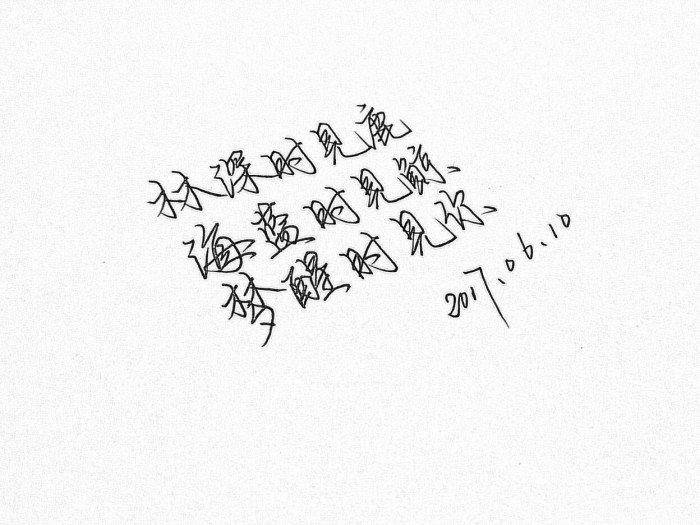 林深时见鹿
海蓝时见鲸、
梦醒时见你、
2017.06.10